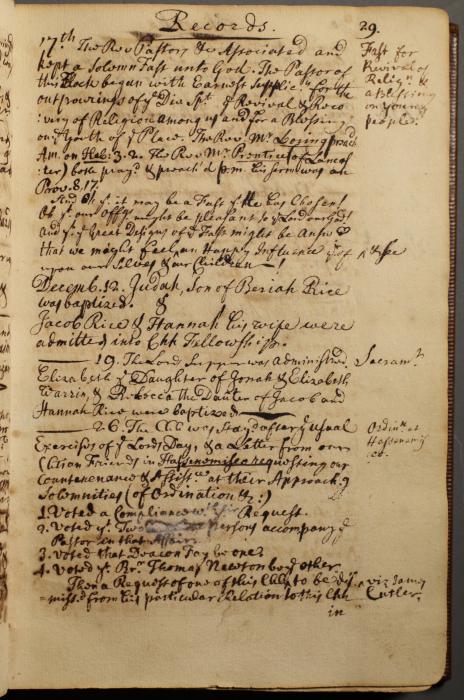 Records.
29.
17th The Rev Pastors &c Associated and
kept a Solemn Fast unto God. The Pastor of
this Flock began with Earnest for the
outpourings of ye Div Spt ye Revival & Reco
:very of Religion among us and for a Blessing
on ye Youth of ye Place. The Rev Mr Loring preach
Am. on Hab: 3.2. The Rev Mr Prentice (of Lancas
:ter) both pray'd & preach'd p.m. his sermon was on
Prov. 8.17.
And Oh yt it may be a Fast ye He has Chosen!
Oh yt our Offs might be pleasant to ye Lord our God!
And ye Great Designs of ye Fast might be Answ
that we might feel an Happy Influence yrof
upon our Selves & our Children —!
Fast for
Revival of
Relign &
a Blessing
on young
people.
Decemb. 12. Judah, Son of Beriah Rice
was baptized. &
Jacob Rice & Hannah his wife were
admitted into Chh Fellowship.
19. The Lord's Supper was Administred.
Sacramt
Elizabeth ye Daughter of Jonah & Elizabeth
Warrin, & Rebecca the Dauter of Jacob and
Hannah Rice were baptized
26. The Chh was Stay'd after ye usual
Exercises of ye Lord's Day, & a Letter from our
Christian Friends in Hassenamisco requesting our
Countenance & Assistce at their Approach'g
Solemnities (of Ordination &c:)
Ordintn at
Hassenamis
:co.
1. Voted a Compliance wth their Request.
2. Voted yt Two persons accompany ye
Pastor in that Affair.
3. Voted that Deacon Fay be one.
4. Voted yt Br. Thomas Newton be ye other
Then a Request of one of this Chh to be dis
=miss'd from his particular Relation to this Chh
viz James
Cutler.
in